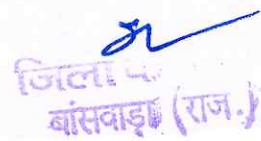 जिला
बांसवाड़ा (राज.)